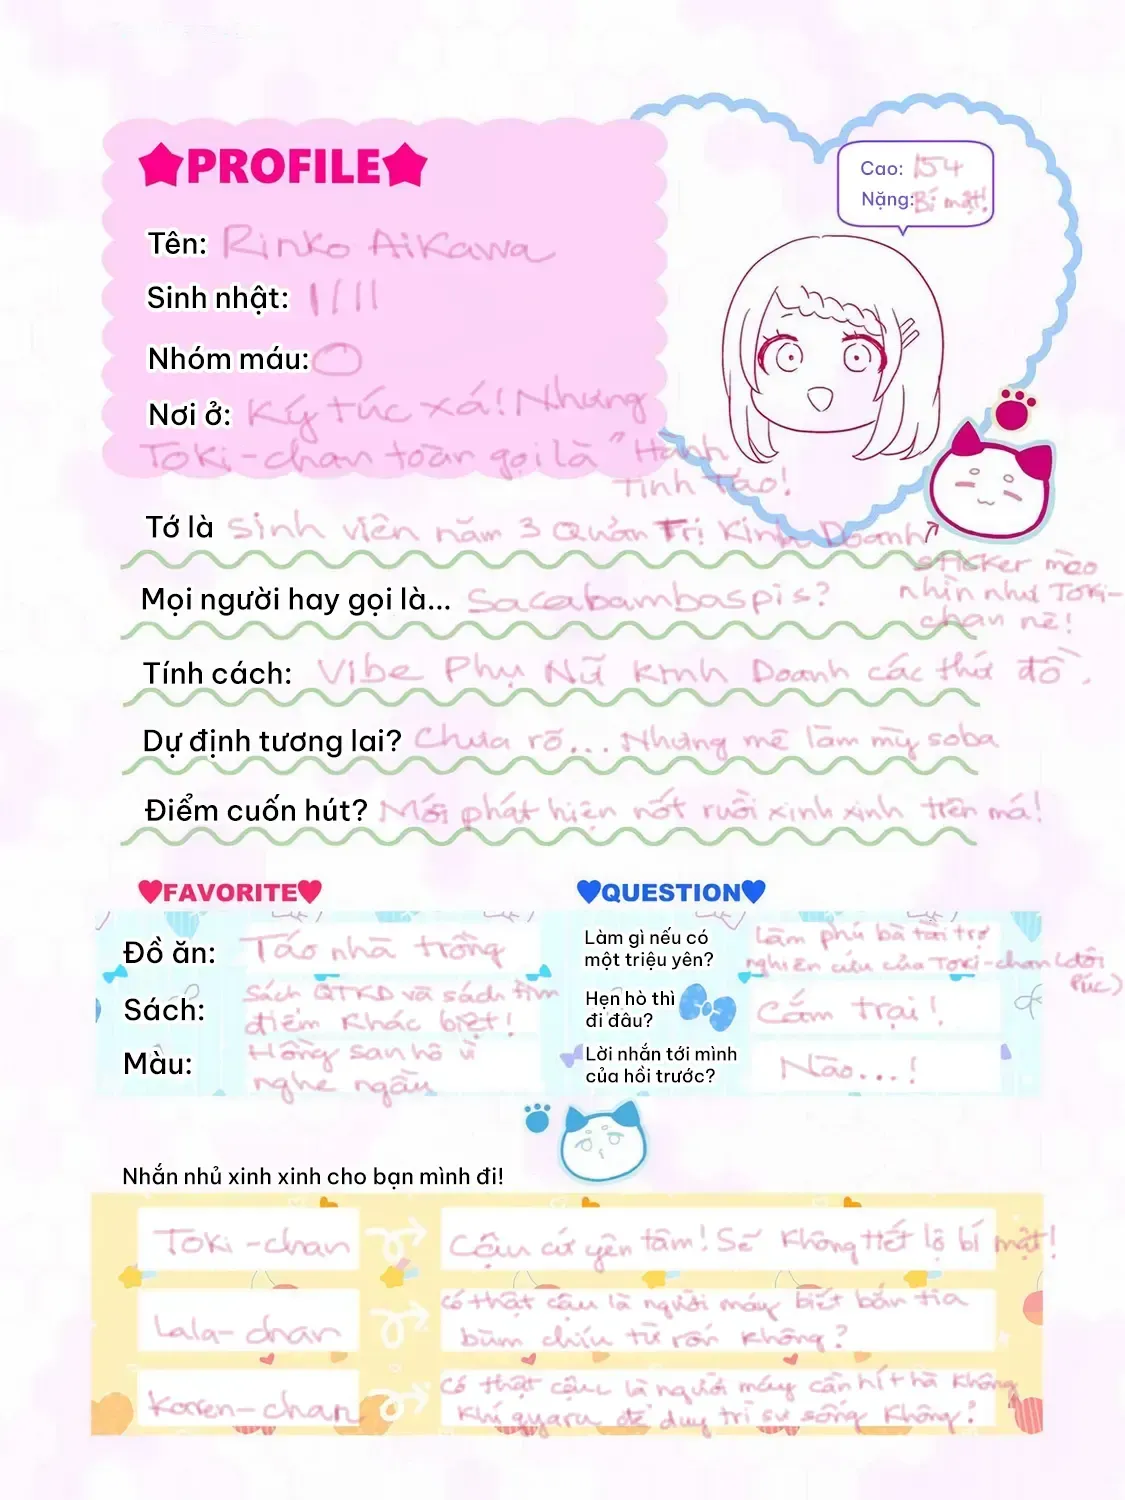 ★PROFILE★
Cao: 154
Nặng: Bí mật!
Tên: Rinko Aikawa
Sinh nhật: 1/11
Nhóm máu: O
Nơi ở: Ký túc xá! Nhưng
Toki-chan toàn gọi là "Hành
Tinh Táo!
Tớ là sinh viên năm 3 Quản Trị Kinh Doanh
sticker mèo
nhìn như Toki-
chan nè!
Mọi người hay gọi là... Sacabambaspis?
Tính cách: Vibe Phụ Nữ Kinh Doanh các thứ đồ.
Dự định tương lai? Chưa rõ... Nhưng mê làm mỳ soba
Điểm cuốn hút? Mới phát hiện nốt ruồi xinh xinh trên má!
♥FAVORITE♥
Đồ ăn: Táo nhà trồng
Sách: Sách QTKD và sách tìm
điểm khác biệt!
Màu: Hồng san hô vì
nghe ngầu
♥QUESTION♥
Làm gì nếu có
một triệu yên?
Làm phú bà tài trợ
nghiên cứu của Toki-chan (dôi
Púc)
Hẹn hò thì
đi đâu?
Cắm trại!
Lời nhắn tới mình
của hồi trước?
Não...!
Nhắn nhủ xinh xinh cho bạn mình đi!
Toki-chan
Cậu cứ yên tâm! Sẽ không tiết lộ bí mật!
Lala-chan
Có thật cậu là người máy biết bắn tia
bùm chíu từ rốn không?
Karen-chan
Có thật cậu là người máy cần hít hà không
khí gyaru để duy trì sự sống không?